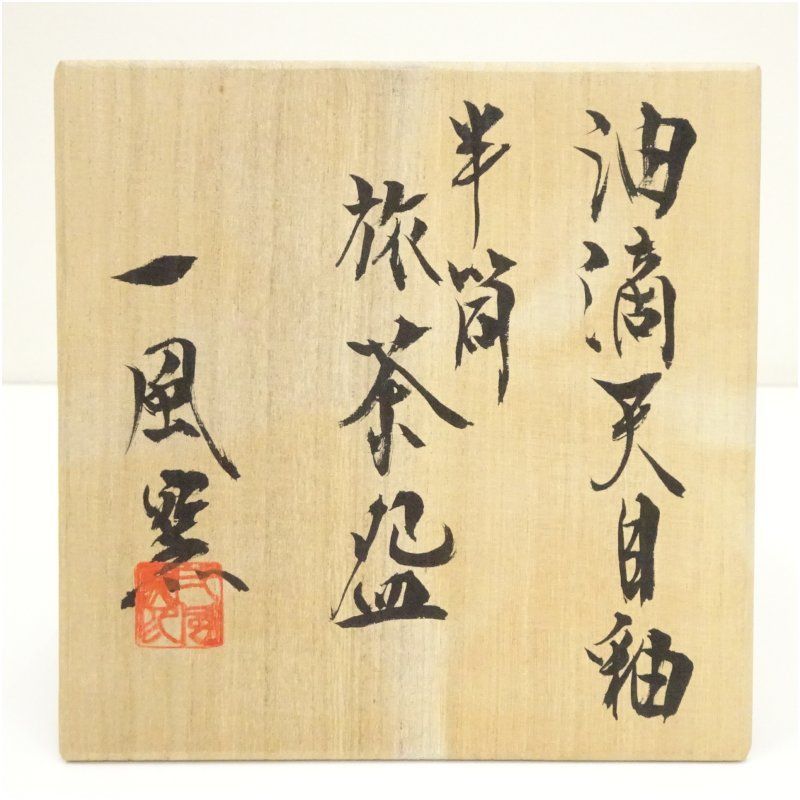 油滴天目釉
半筒
旅茶盌
一風窯